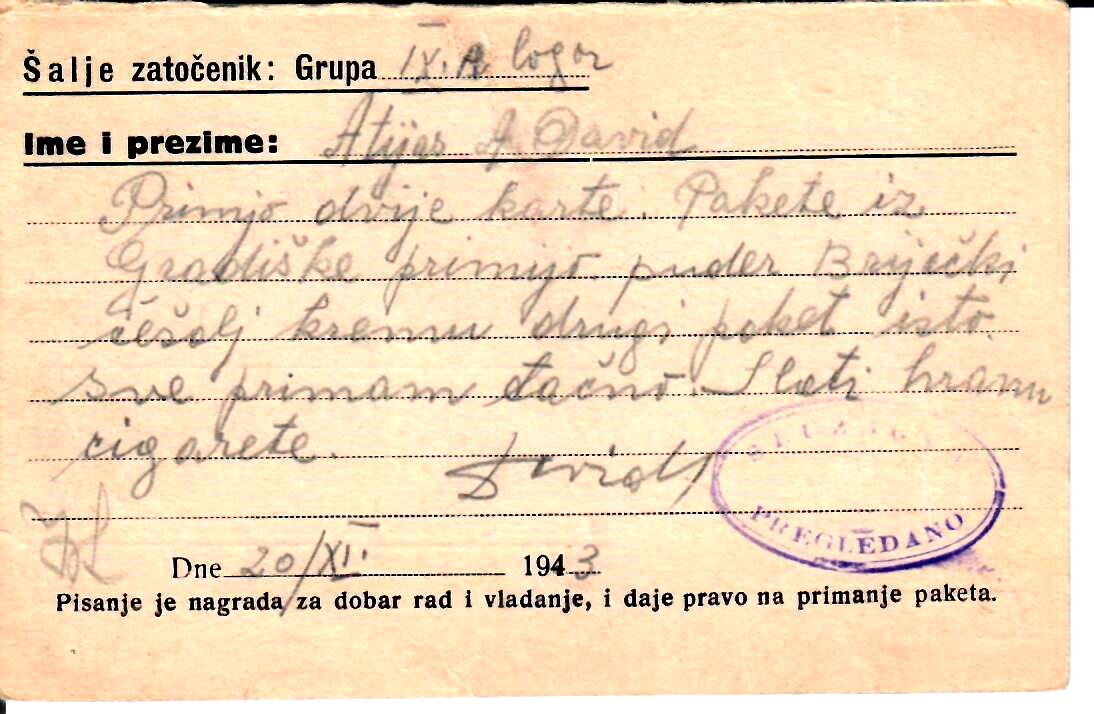 Šalje zatočenik: Grupa IX. A logor
Ime i prezime: Atijas A David
Primjo dvije karte. Pakete iz
Gradiške primijo puder Briječki
češalj kremu drugi paket isto
sve primam tačno. Slati hranu
cigarete.
David
PREGLEDANO
Dne 20/XI. 1943
Pisanje je nagrada za dobar rad i vladanje, i daje pravo na primanje paketa.